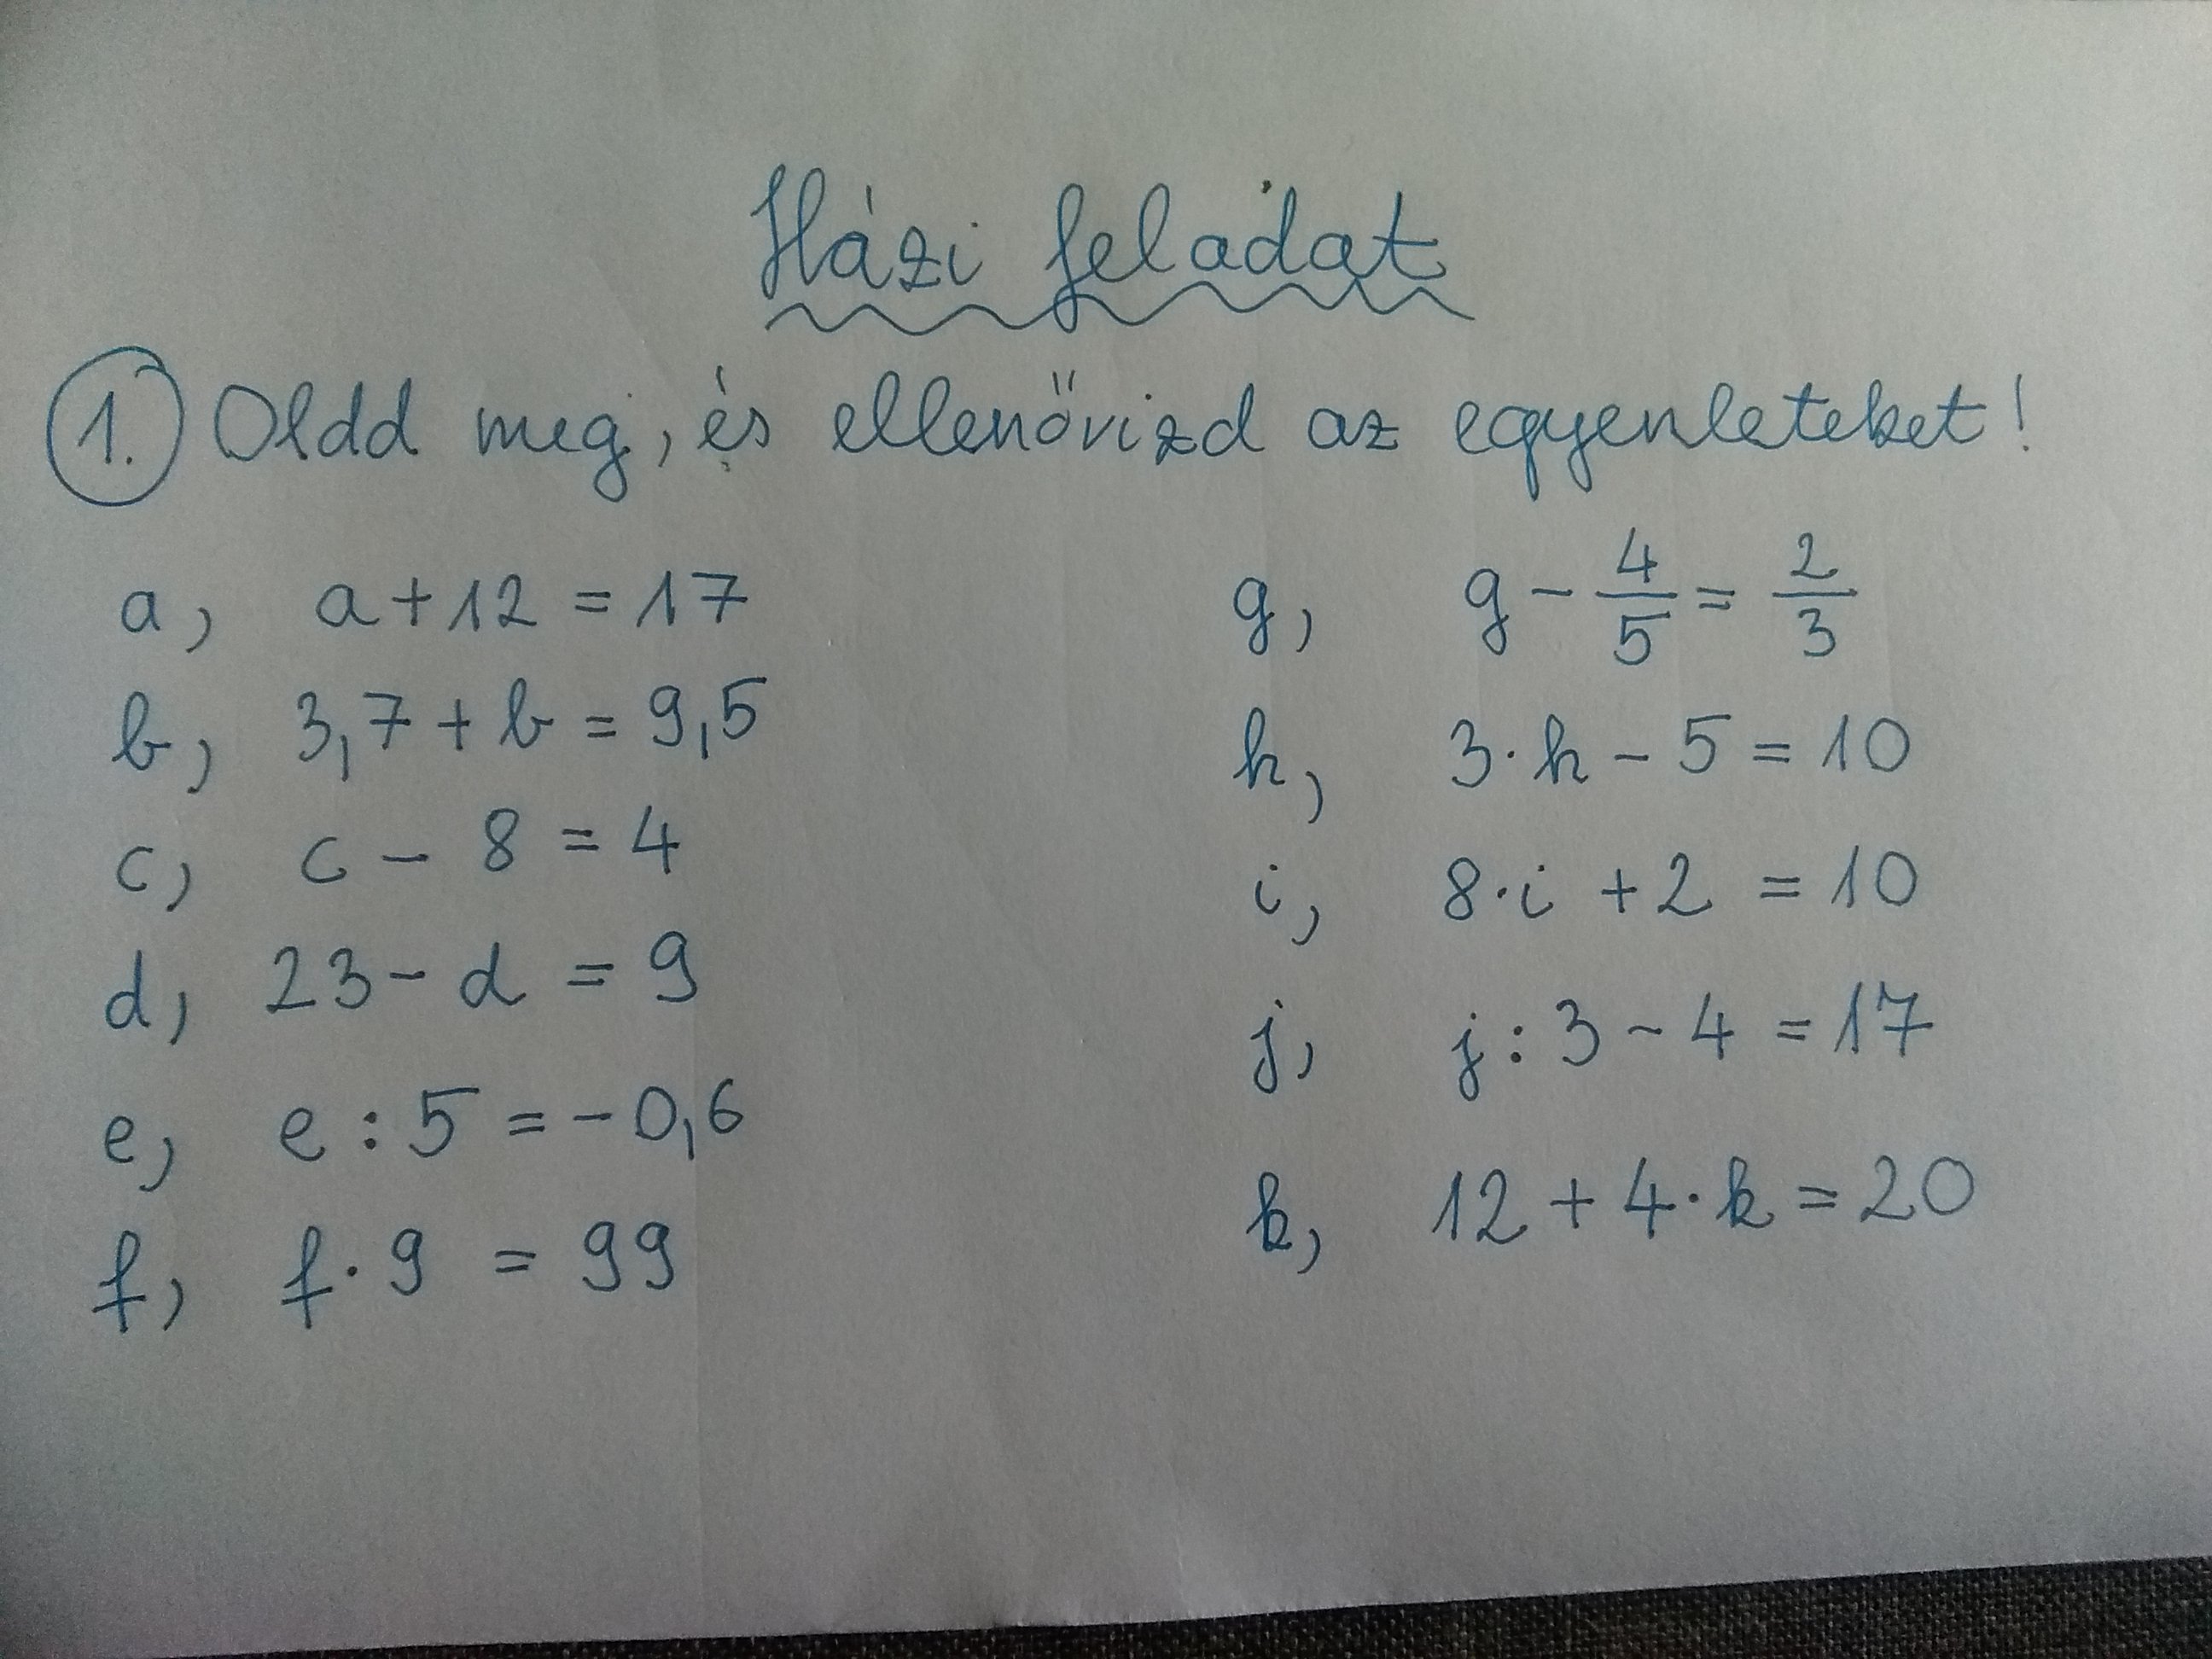 Házi feladat
1. Oldd meg, és ellenőrizd az egyenleteket!
a, a + 12 = 17
b, 3,7 + b = 9,5
c, c - 8 = 4
d, 23 - d = 9
e, e : 5 = -0,6
f, f · 9 = 99
g, g - 4/5 = 2/3
h, 3 · h - 5 = 10
i, 8 · i + 2 = 10
j, j : 3 - 4 = 17
k, 12 + 4 · k = 20